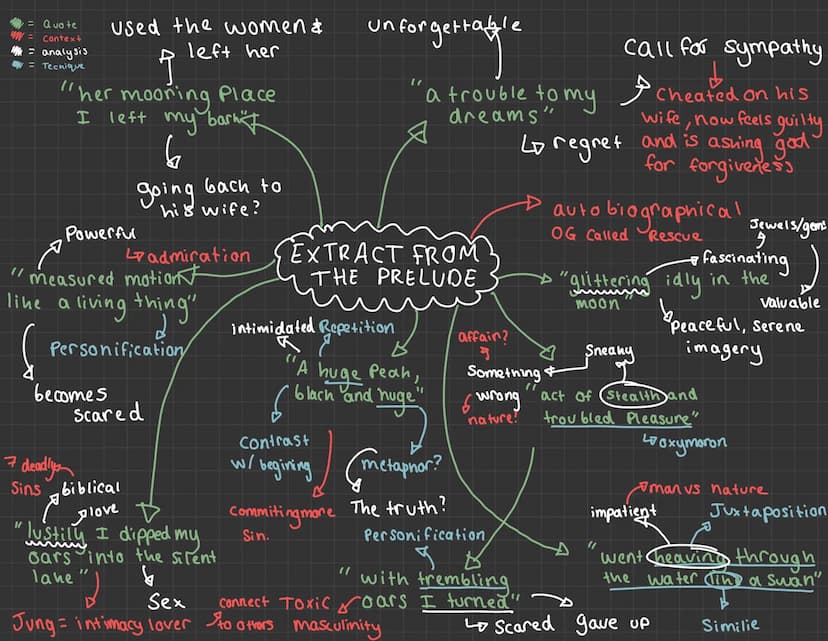 = Quote
= Context
= analysis
= Tecnique
used the women &
left her
unforgettable
Call for sympathy
"her mooring Place
I left my bark"
"a trouble to my
dreams"
regret
Cheated on his
wife, now feels guilty
and is asking god
for forgiveness
going back to
his wife?
autobiographical
OG Called Rescue
EXTRACT FROM
THE PRELUDE
Powerful
admiration
"measured motion
like a living thing"
Personification
becomes
scared
Jewels/gems
fascinating
"glittering idly in the
moon"
valuable
Peaceful, serene
imagery
intimidated
Repetition
"A huge Peak,
black and huge"
contrast
w/ begining
metaphor?
The truth?
Commiting more
Sin.
affair?
Sneaky
Something
wrong
nature?
"act of Stealth and
troubled Pleasure"
oxymoron
7 deadly
Sins
biblical
love
"lustily I dipped my
oars into the silent
lake"
Sex
Jung = intimacy lover
Personification
"with trembling
oars I turned"
connect
to others
Toxic
masculinity
Scared
gave up
man vs nature
impatient
Juxtaposition
"went heaving through
the water like a swan"
Similie